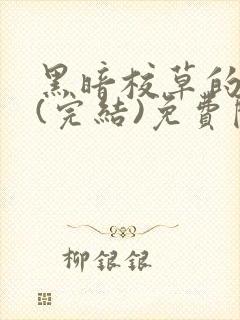 黑暗校草的
(完結)免費
柳銀銀